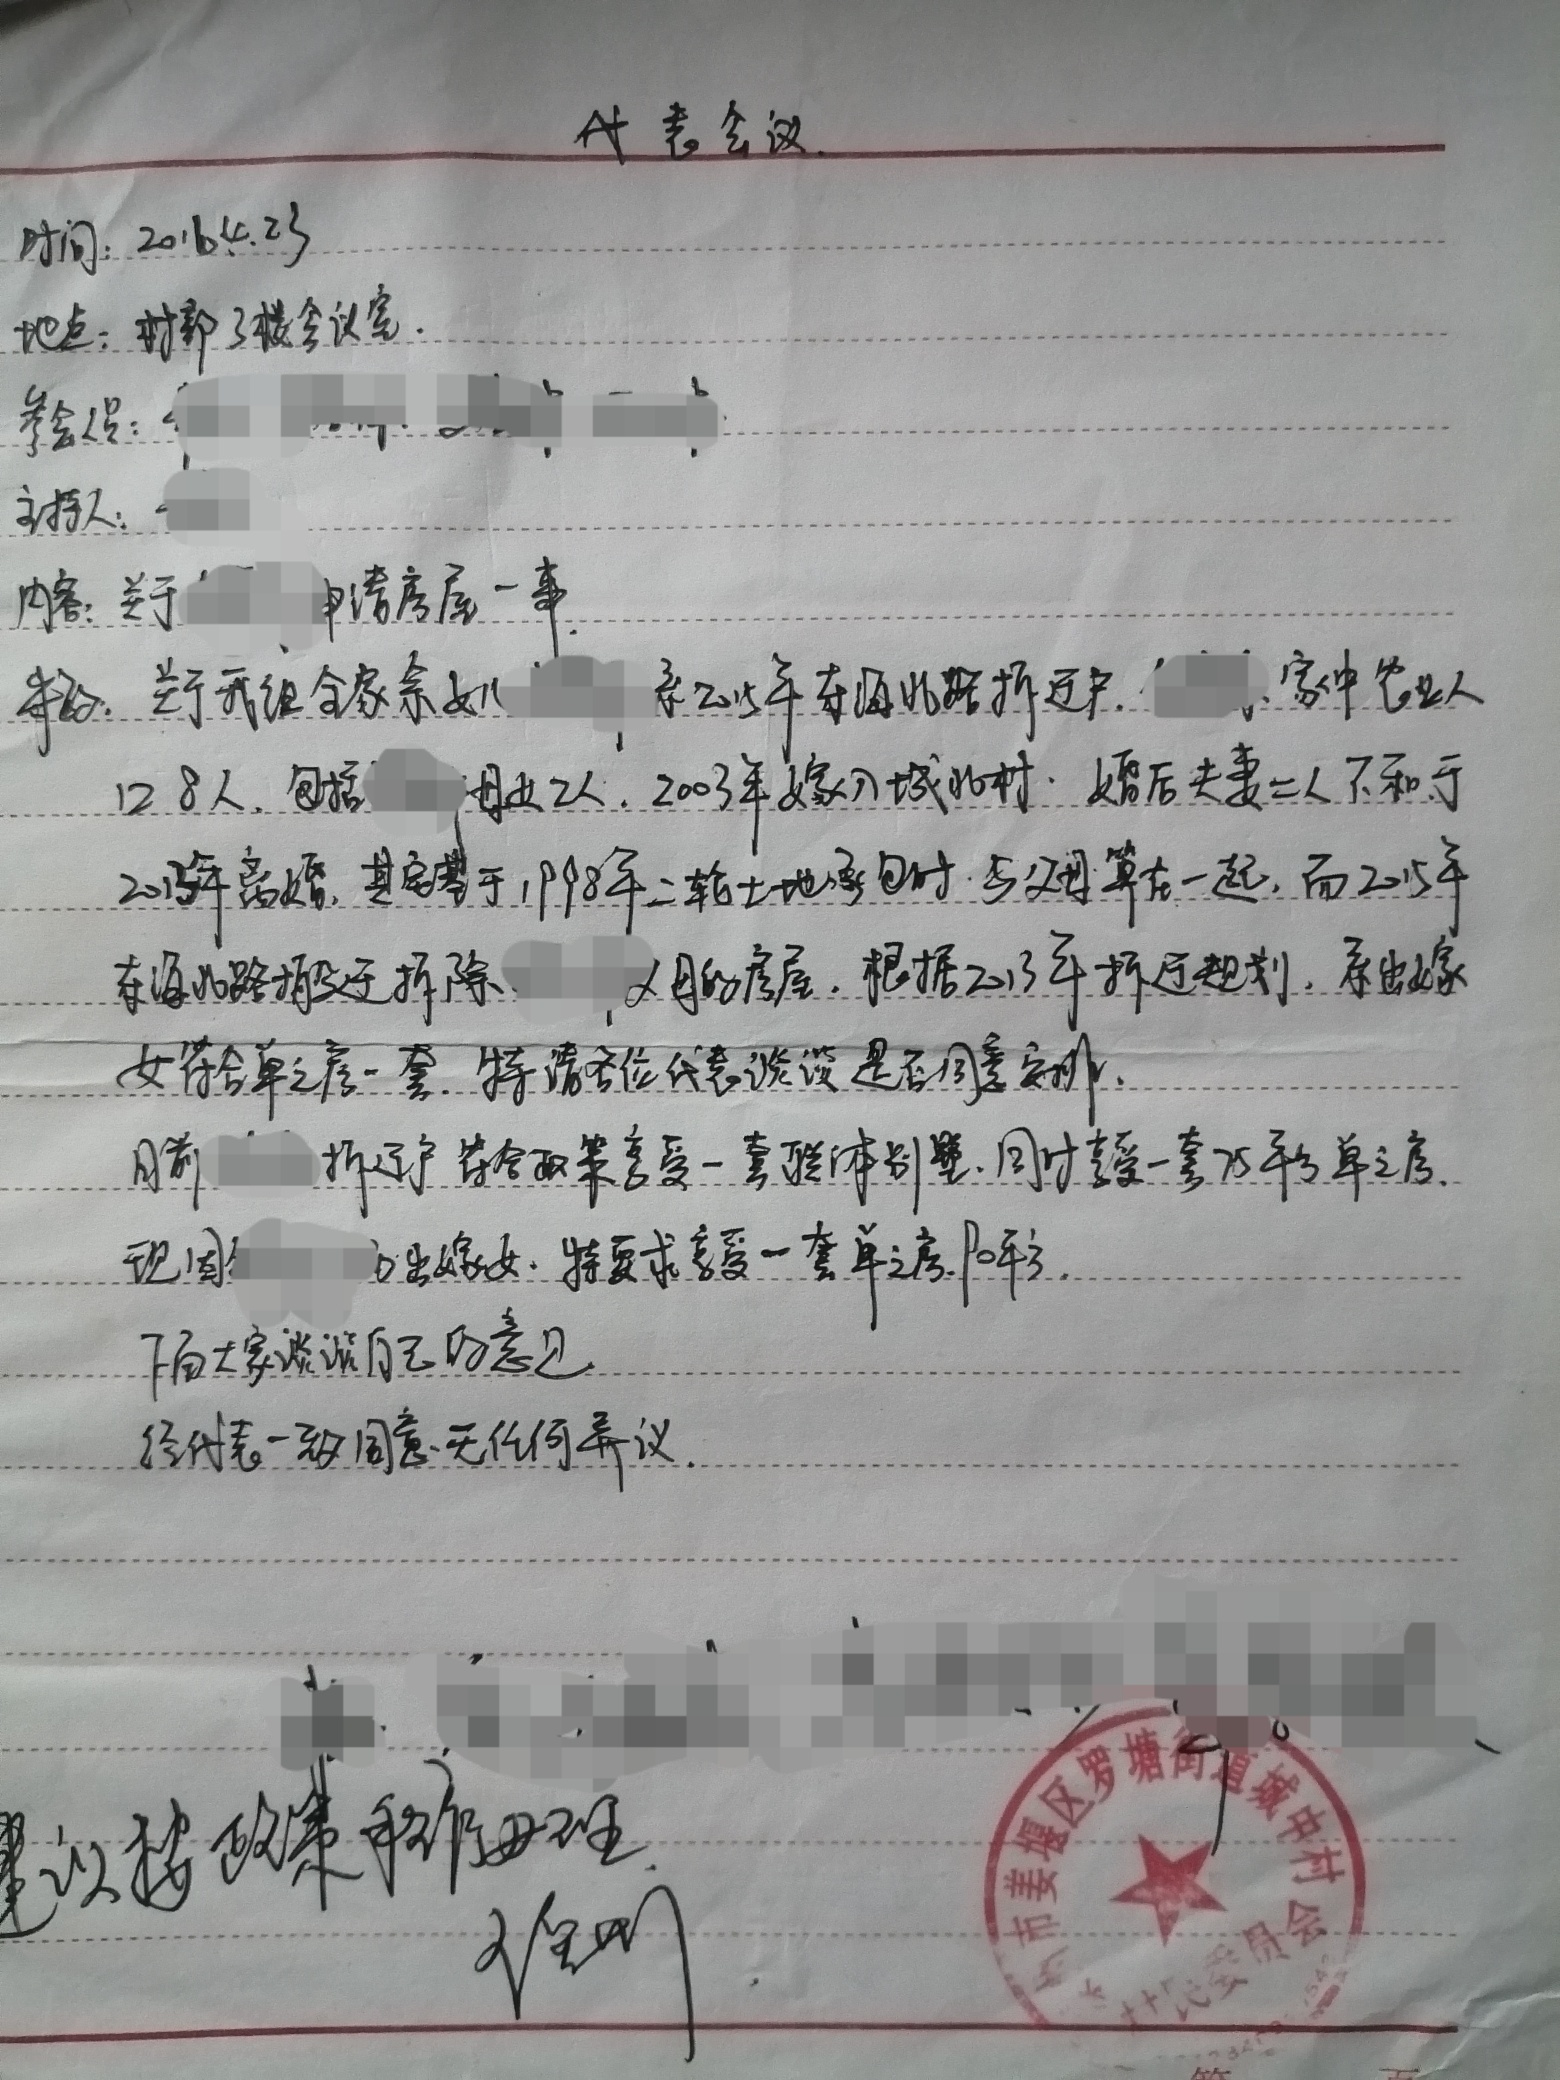 代表会议.
时间: 2016.4.23
地点: 村部3楼会议室.
参会人员:
主持人:
内容: 关于 申请房屋一事.
关于我组 家 女儿 系2015年东海北路拆迁户. 家中农业人
口8人. 包括 母女2人. 2003年嫁入城北村. 婚后夫妻二人不和于
2015年离婚. 其 于1998年二轮土地承包时. 与父母算在一起. 而2015年
东海北路拆迁拆除 父母的房屋. 根据2013年拆迁规划. 系出嫁
女符合单元房一套. 特请各位代表谈谈是否同意安排.
目前 拆迁户符合政策享受一套联体别墅. 同时享受一套75平方单元房.
现因 出嫁女. 特要求享受一套单元房90平方.
下面大家谈谈自己的意见.
经代表一致同意. 无任何异议.
建议按政策 办理.
市姜堰区罗塘街道城中村
村民委员会
第 页